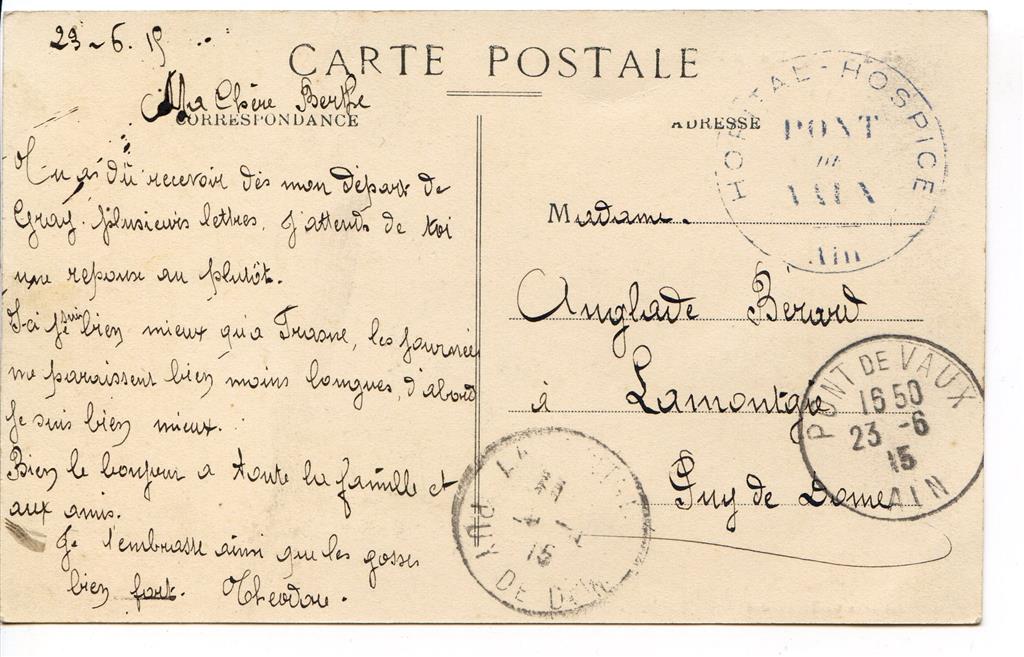 23-6.15
CARTE POSTALE
Ma Chère Berthe
CORRESPONDANCE
Tu as dû recevoir dès mon départ de
Gray plusieurs lettres, j'attends de toi
une reponse au plutôt.
I-ci je suis bien mieux qu'a Frasne, les journées
me paraissent bien moins longues, d'abord
je suis bien mieux.
Bien le bonjour a toute la famille et
aux amis.
Je t'embrasse ainsi que les gosses
bien fort. Theodore.
ADRESSE
HOPITAL-HOSPICE
PONT
DE
VAUX
Ain
Madame.
Anglade Berard
à Lamontgie
Puy de Dome
PONT DE VAUX
16 50
23 -6
15
AIN
LA
15
PUY DE DOME